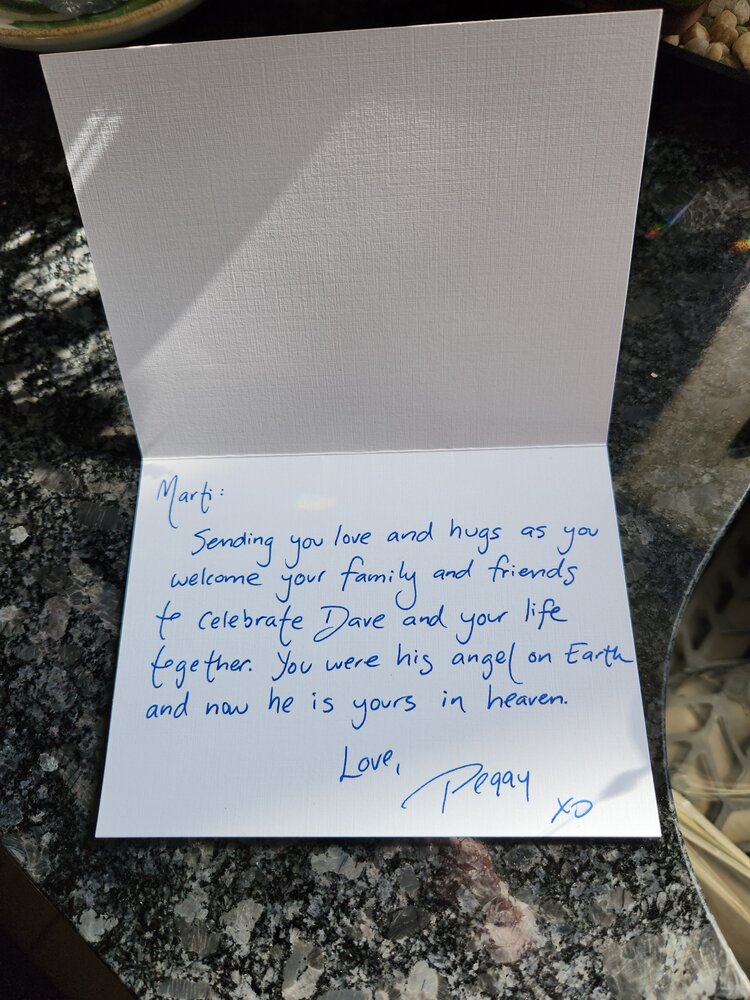 Marti:
Sending you love and hugs as you
welcome your family and friends
to celebrate Dave and your life
together. You were his angel on Earth
and now he is yours in heaven.
Love,
Peggy
XO